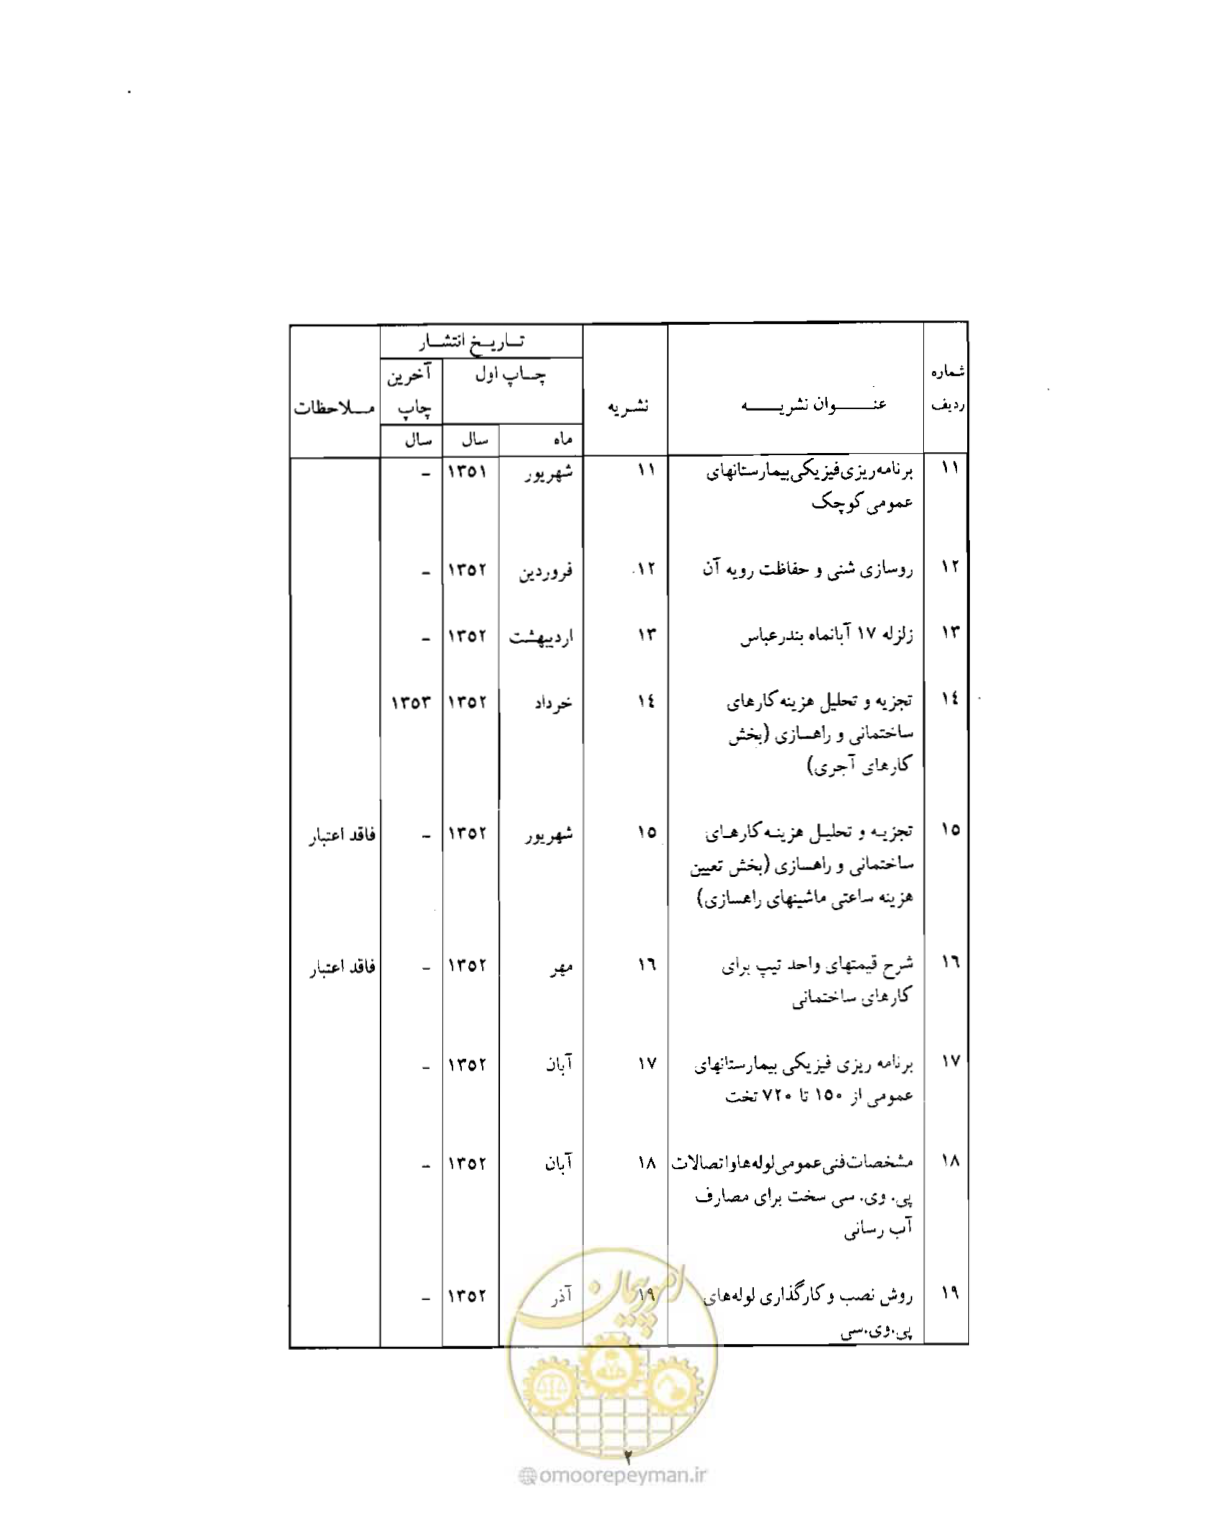 تـاریـخ انتشـار
شماره ردیف
عنـــــوان نشریـــــه
نشریه
چـاپ اول
آخرین چاپ
مـلاحظات
ماه
سال
سال
۱۱ برنامه‌ریزی فیزیکی بیمارستانهای ۱۱ شهریور ۱۳۵۱ –
عمومی کوچک
۱۲ روسازی شنی و حفاظت رویه آن ۱۲ فروردین ۱۳۵۲ –
۱۳ زلزله ۱۷ آبانماه بندرعباس ۱۳ اردیبهشت ۱۳۵۲ –
۱٤ تجزیه و تحلیل هزینه کارهای ۱٤ خرداد ۱۳۵۲ ۱۳۵۳
ساختمانی و راهسازی (بخش
کارهای آجری)
۱۵ تجزیـه و تحلیـل هزینـه کارهـای ۱۵ شهریور ۱۳۵۲ – فاقد اعتبار
ساختمانی و راهسازی (بخش تعیین
هزینه ساعتی ماشینهای راهسازی)
۱٦ شرح قیمتهای واحد تیپ برای ۱٦ مهر ۱۳۵۲ – فاقد اعتبار
کارهای ساختمانی
۱۷ برنامه ریزی فیزیکی بیمارستانهای ۱۷ آبان ۱۳۵۲ –
عمومی از ۱۵۰ تا ۷۲۰ تخت
۱۸ مشخصات فنی عمومی لوله‌ها و اتصالات ۱۸ آبان ۱۳۵۲ –
پی. وی. سی سخت برای مصارف
آب رسانی
۱۹ روش نصب و کارگذاری لوله‌های ۱۹ آذر ۱۳۵۲ –
پی.وی.سی
امور پیمان
۲
omoorepeyman.ir